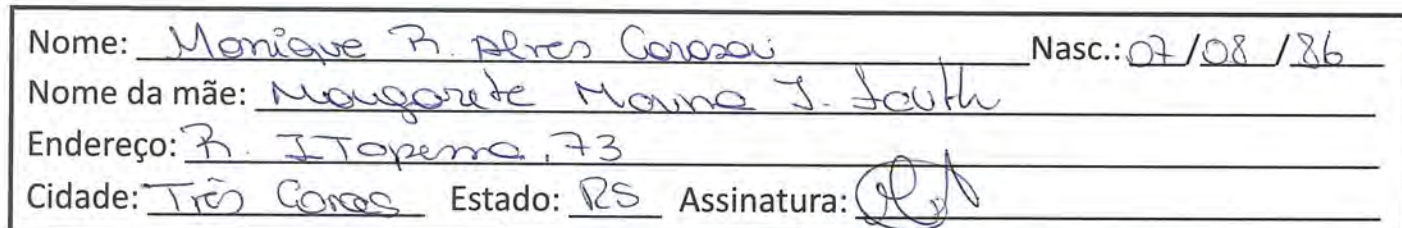 Nome: Monique R. Alves Corosai Nasc.: 07/08/86
Nome da mãe: Margarete Maria J. South
Endereço: R. ITapema, 73
Cidade: Três Coroas Estado: RS Assinatura: